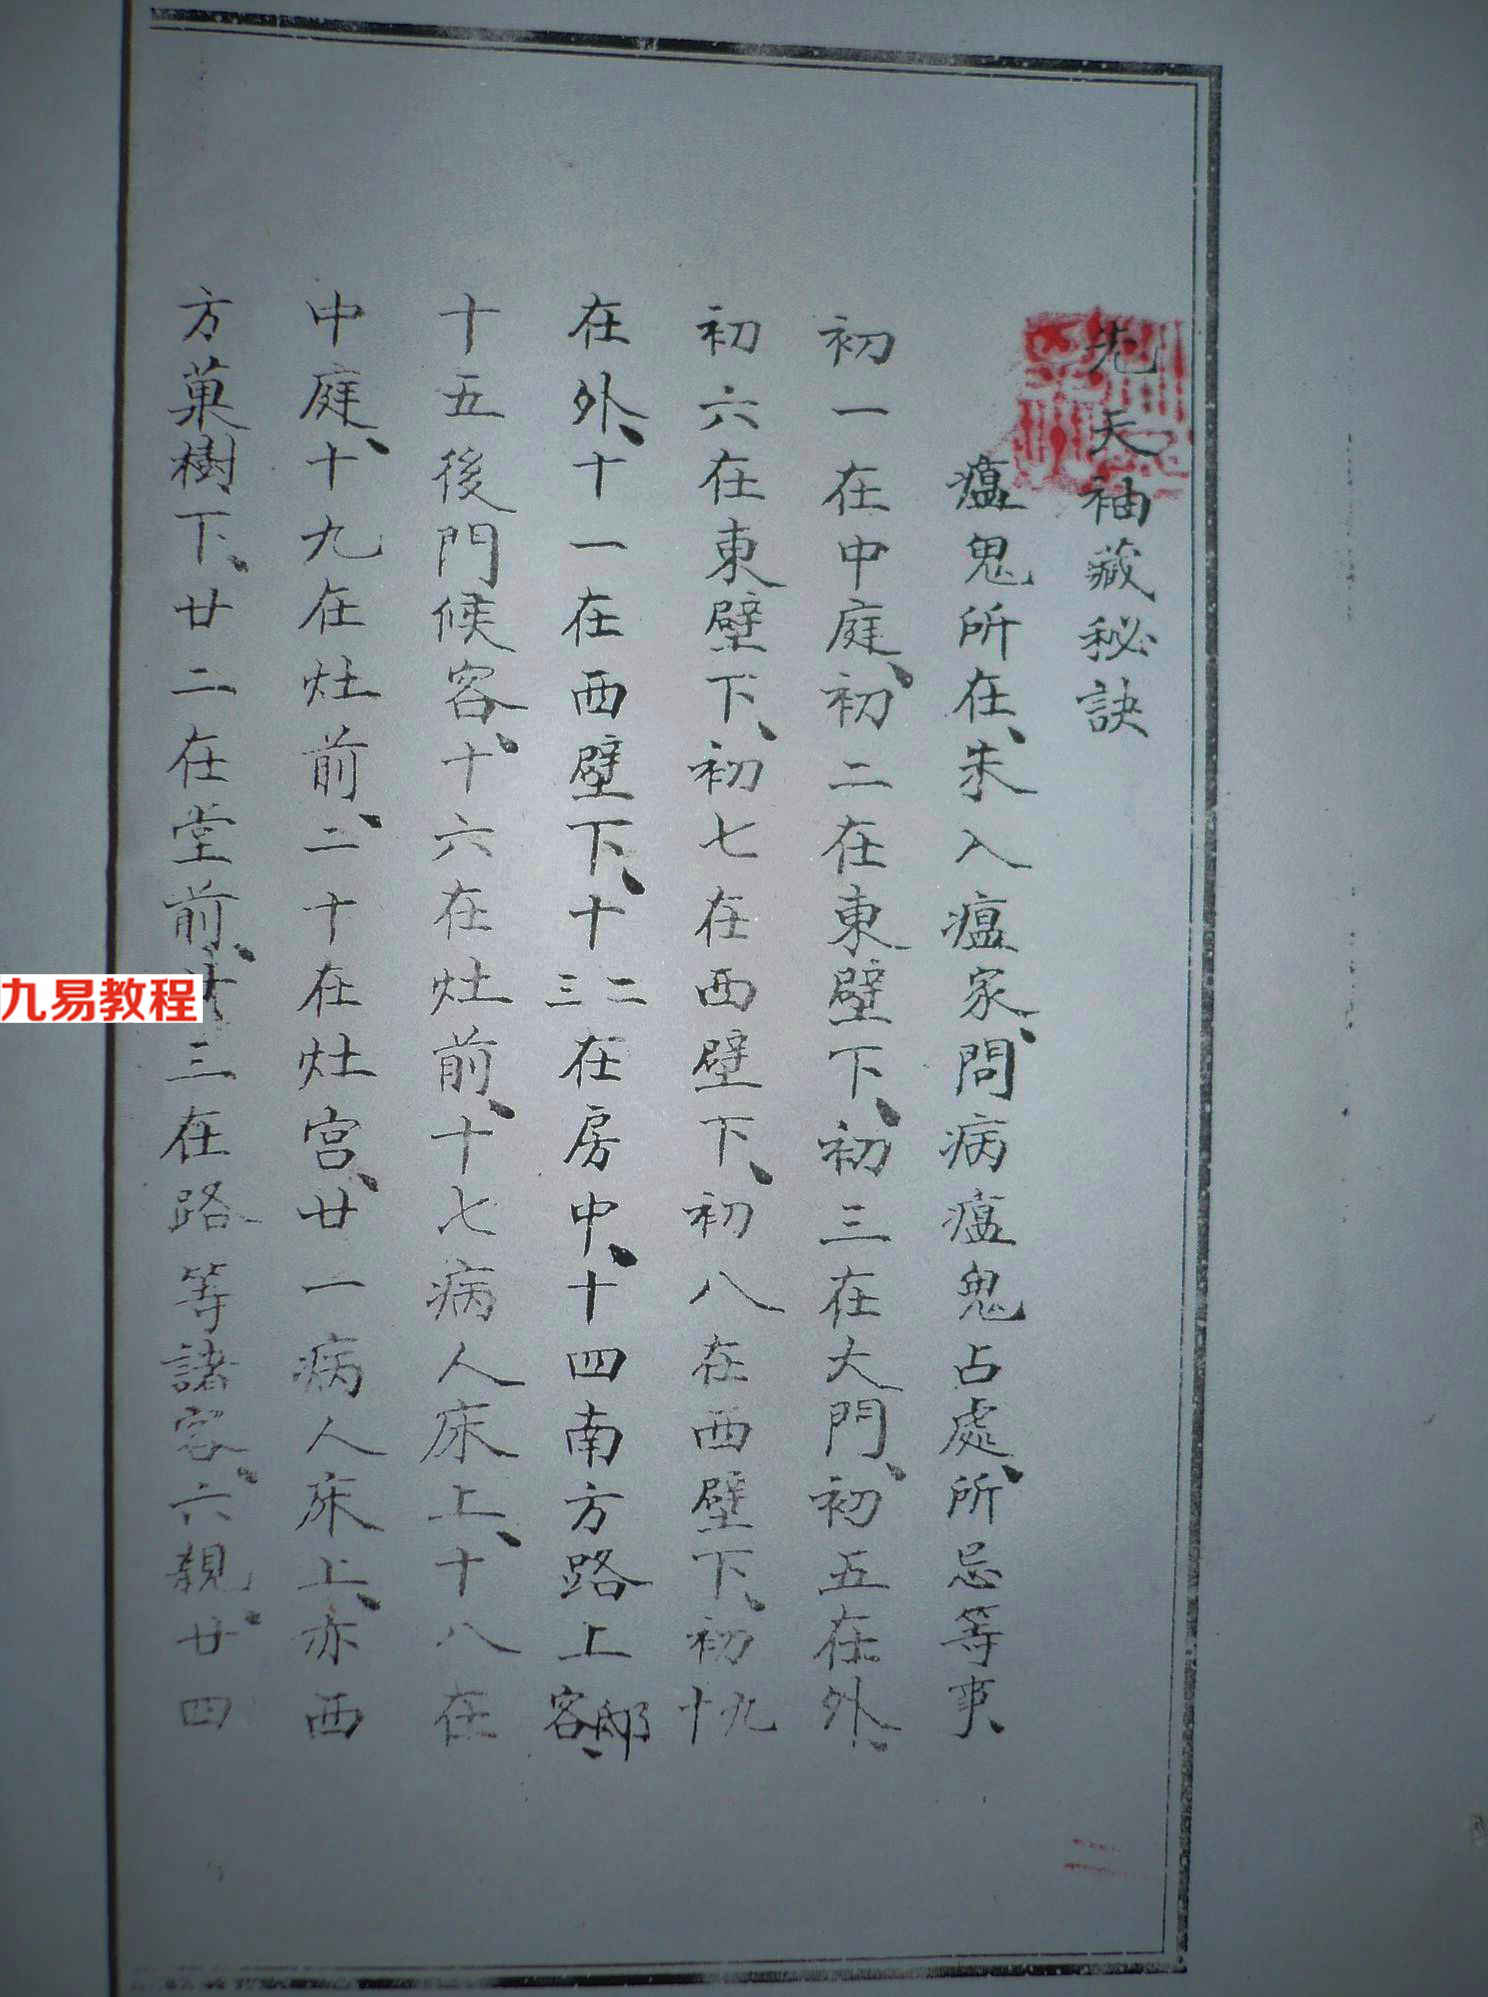 先天袖藏秘訣
瘟鬼所在、未入瘟家、問病瘟鬼占處、所忌等事、
初一在中庭、初二在東壁下、初三在大門、初五在外、
初六在東壁下、初七在西壁下、初八在西壁下、初九十
在外、十一在西壁下、十二三在房中、十四南方路上邸客、
十五後門候客、十六在灶前、十七病人床上、十八在
中庭、十九在灶前、二十在灶宫、廿一病人床上、亦西
方菓樹下、廿二在堂前、廿三在路等諸客、六親、廿四
九易教程